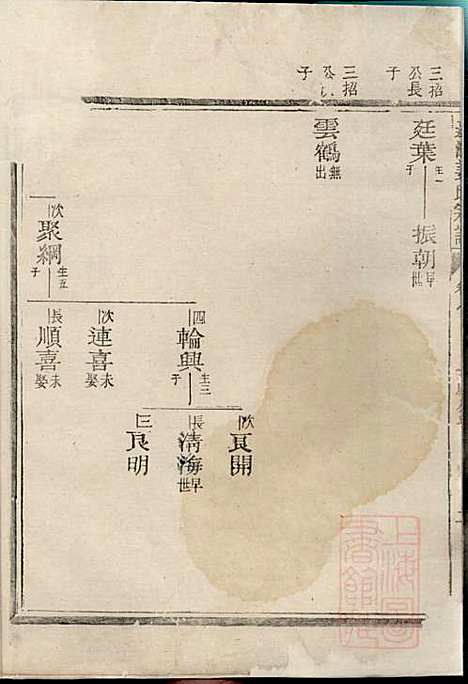 三招
公長
子
廷葉
生一
子
振朝
早世
三招
公
子
雲鶴
無出
次
聚綱
生五
子
四
輪興
生三
子
次
連喜
未娶
長
順喜
未娶
次
艮開
長
清海
早世
三
艮明
上海圖書館藏